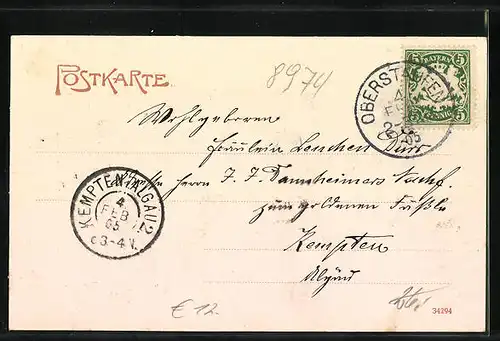 POSTKARTE.
8974
BAYERN
5 5
5 PFENNIG 5
OBERSTAUFEN
4
FEB
05
Wohlgeboren
Fräulein Lenchen Dürr
Adr. Herrn J. J. Tannheimers Nachf.
zum goldenen Fässle
Kempten
Algäu
KEMPTEN (ALGÄU) 2
4
FEB
05
3-4 N.
€ 12.
34294